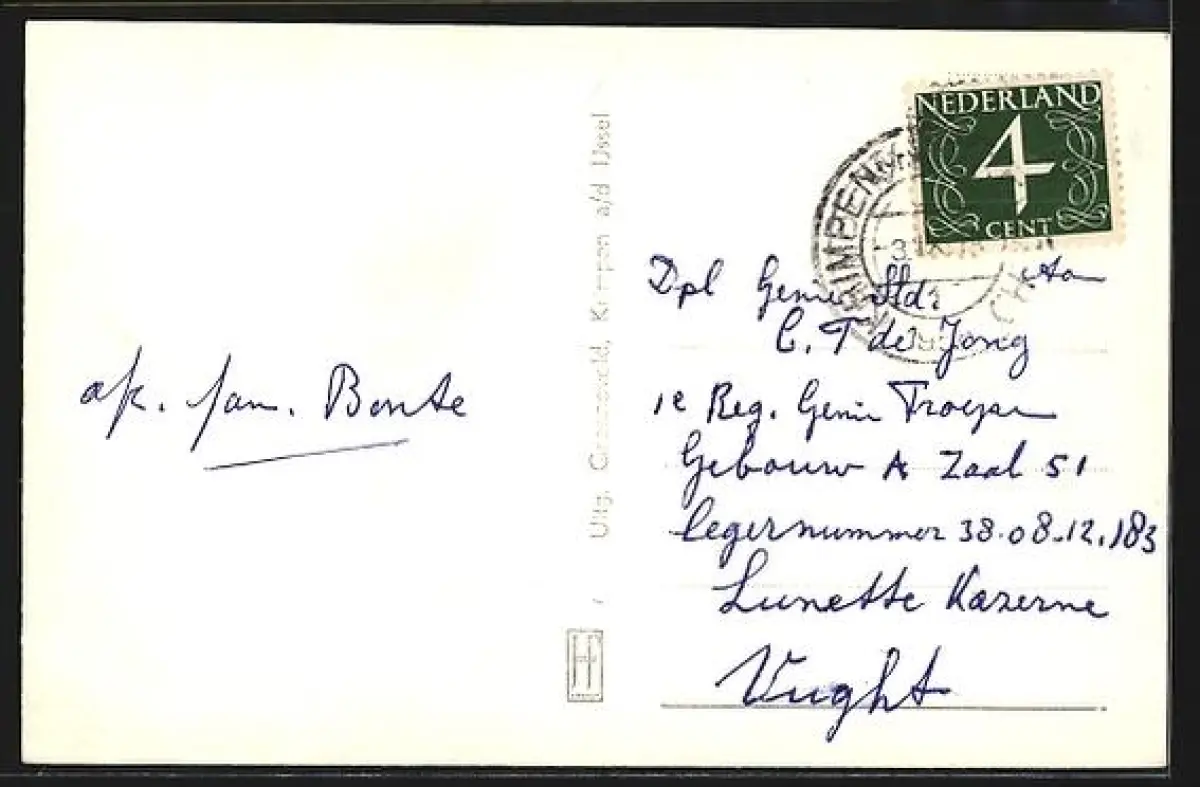 NEDERLAND
4
CENT
KRIMPEN
Dpl Genie Sldt
C. T de Jong
1e Reg. Genie Troepen
Gebouw A Zaal 51
legernummer 38.08.12.183
Lunette Kazerne
Vught
afz. fam. Bonte
Uitg. Groeneveld, Krimpen a/d IJssel